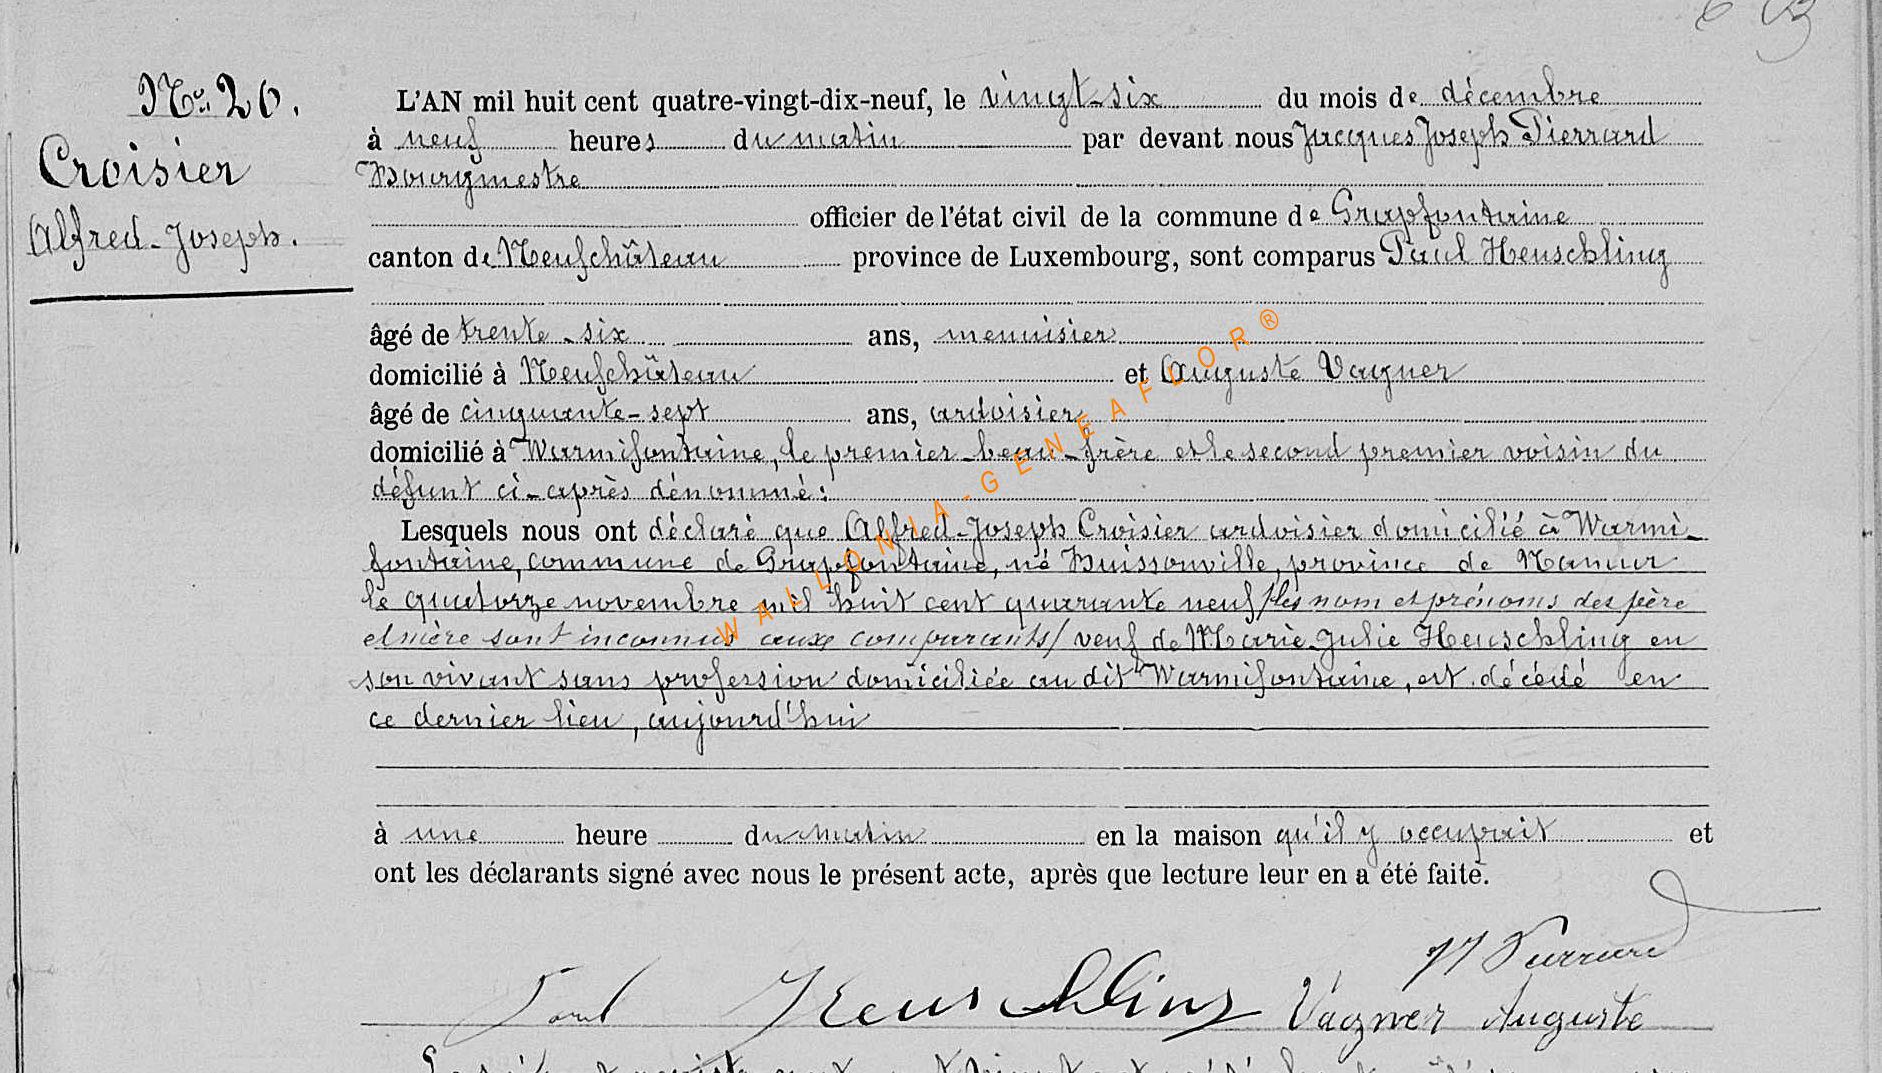 No. 20.
Croisier
Alfred-Joseph.
L'AN mil huit cent quatre-vingt-dix-neuf, le vingt-six du mois de décembre
à neuf heures du matin par devant nous Jacques Joseph Pierrard
Bourgmestre
officier de l'état civil de la commune de Grapfontaine
canton de Neufchâteau province de Luxembourg, sont comparus Paul Heuschling
âgé de trente-six ans, menuisier
domicilié à Neufchâteau et Auguste Vagner
âgé de cinquante-sept ans, ardoisier,
domicilié à Warmifontaine, le premier beau-frère et le second premier voisin du
défunt ci-après dénommé:
Lesquels nous ont déclaré que Alfred-Joseph Croisier ardoisier domicilié à Warmi-
fontaine, commune de Grapfontaine, né Buissonville, province de Namur
le quatorze novembre mil huit cent quarante neuf /les nom et prénoms des père
et mère sont inconnus aux comparants/ veuf de Marie-Julie Heuschling en
son vivant sans profession domiciliée au dit Warmifontaine, est décédé en
ce dernier lieu, aujourd'hui
à une heure du matin en la maison qu'il y occupait et
ont les déclarants signé avec nous le présent acte, après que lecture leur en a été faite.
JJ Pierrard
Paul Heuschling Vagner Auguste
WALLONIA-GENEAFLOR®